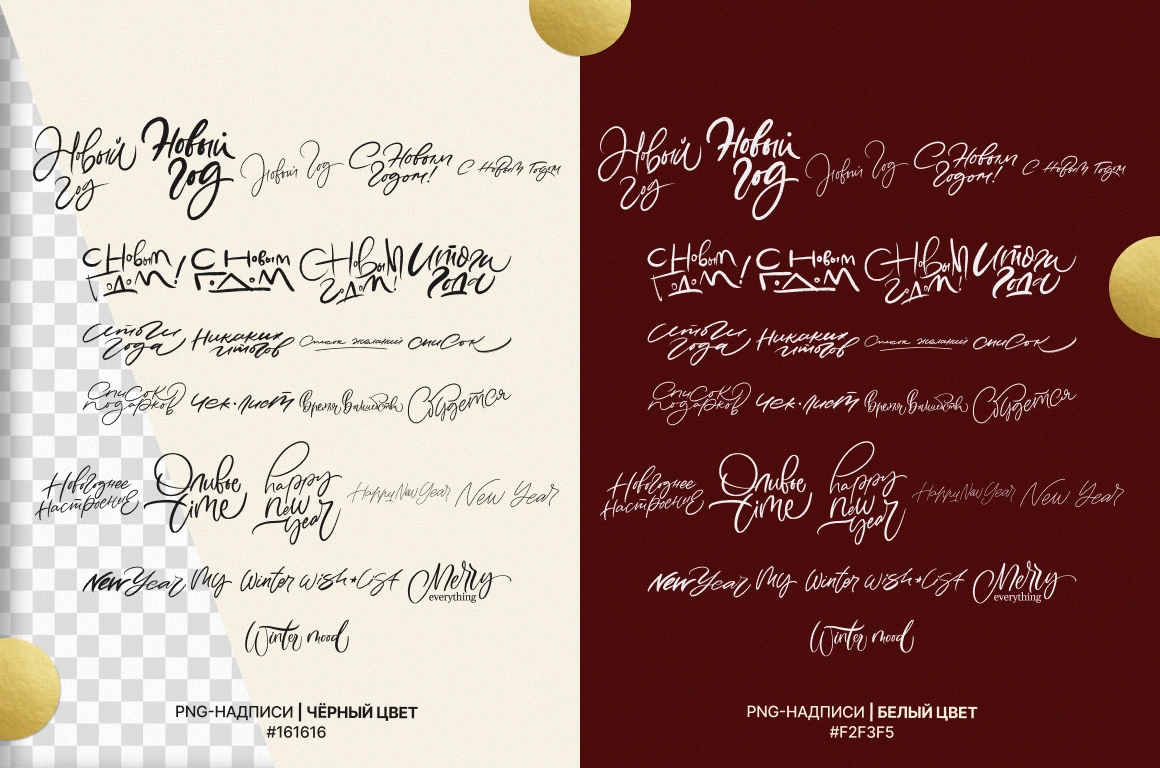 Новый Год Новый Год Новый Год С Новым Годом! С Новым Годом
С Новым Годом! С Новым Годом С Новым Годом! Итоги Года
Итоги Года Никаких итогов Список желаний список
Список подарков Чек-лист Время Волшебства Сбудется
Новогоднее Настроение Оливье time happy new year Happy New Year New Year
New Year My Winter wish★List Merry everything
Winter mood
PNG-НАДПИСИ | ЧЁРНЫЙ ЦВЕТ
#161616
Новый Год Новый Год Новый Год С Новым Годом! С Новым Годом
С Новым Годом! С Новым Годом С Новым Годом! Итоги Года
Итоги Года Никаких итогов Список желаний список
Список подарков Чек-лист Время Волшебства Сбудется
Новогоднее Настроение Оливье time happy new year Happy New Year New Year
New Year My Winter wish★List Merry everything
Winter mood
PNG-НАДПИСИ | БЕЛЫЙ ЦВЕТ
#F2F3F5